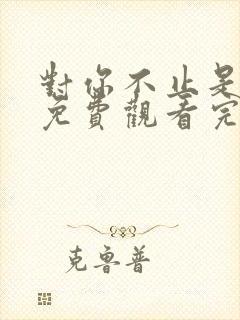 對你不止是
免費觀看完
克魯普